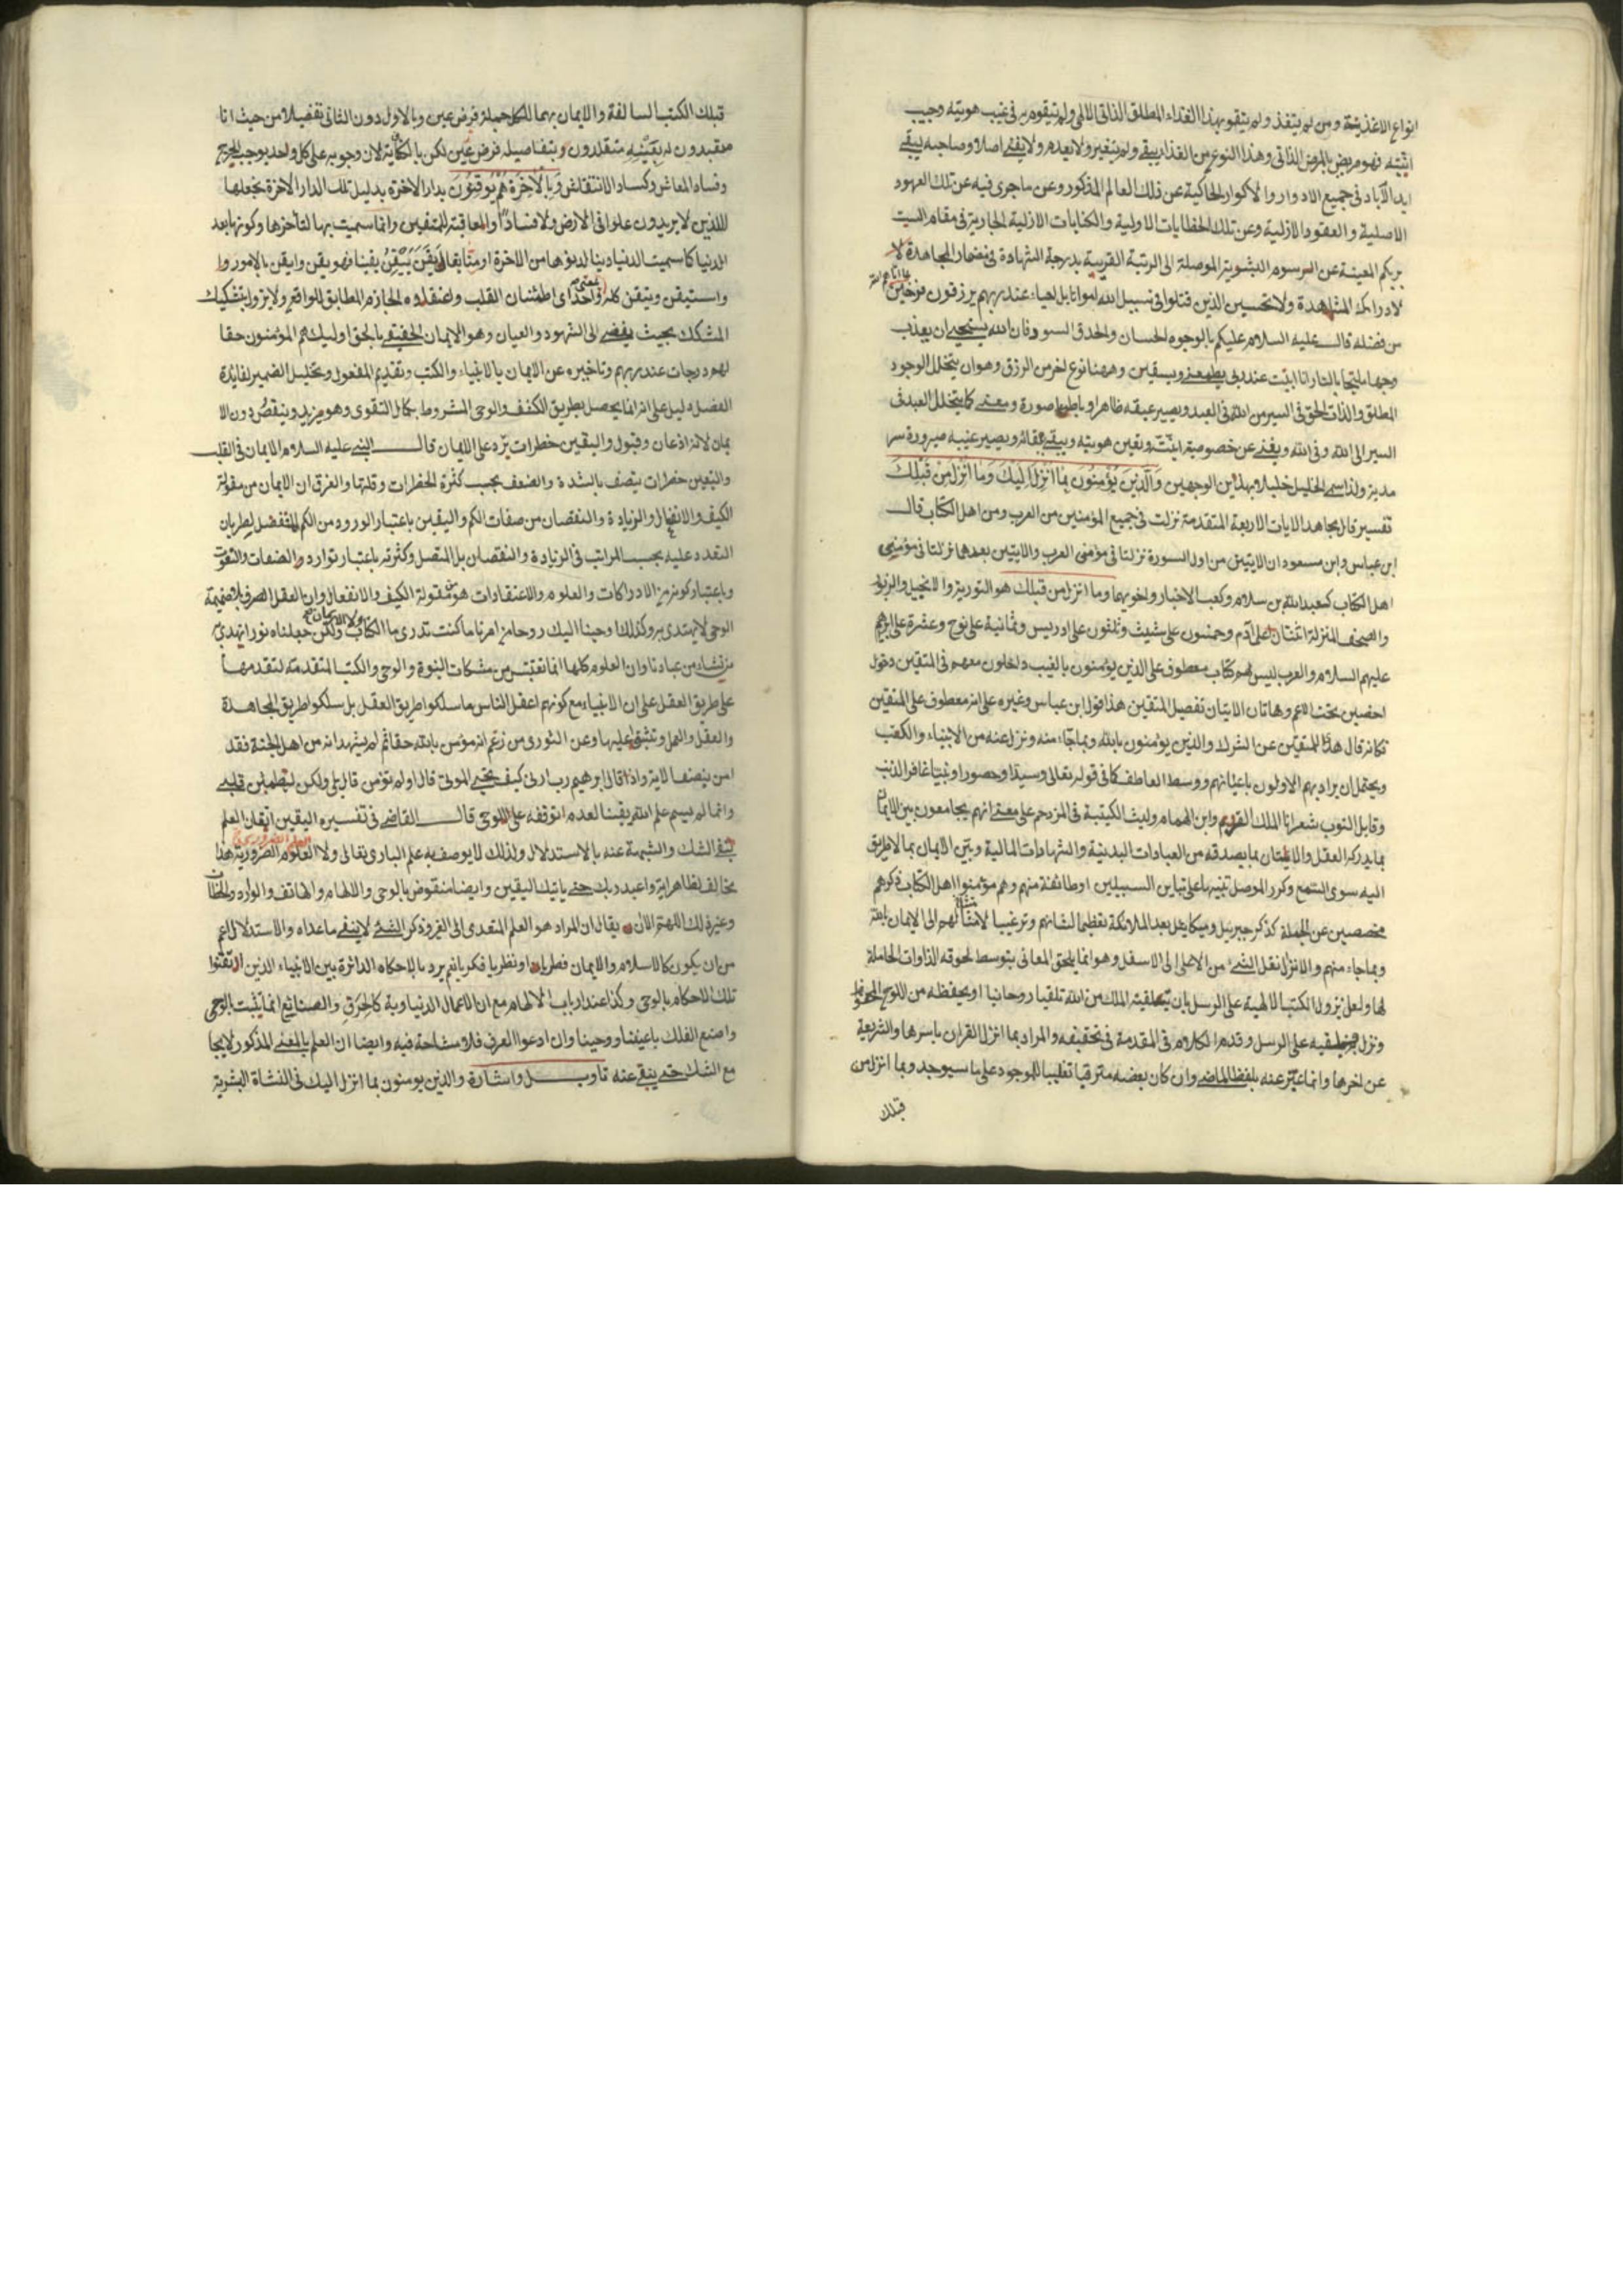 انواع الاغذية ومن لم يتغذ ولم يتقو بهذا الغذاء المطلق الذاتى الالهى ولم يتقوم به فى غيب هويته وجيب
انيته فهو مريض بالمرض الذاتى وهذا النوع من الغذاء يبقى ولم يتغير ولا يعدم ولا يفنى اصلا وصاحبه يبقى
ابد الآباد فى جميع الادوار والاكوار الحاكية عن ذلك العالم المذكور وعن ما جرى فيه عن تلك العهود
الاصلية والعقود الازلية وعن تلك الخطابات الاولية والكتابات الازلية الجارية فى مقام الست
بربكم المعينة عن الرسوم البشرية الموصلة الى الرتبة القريبة بدرجة الشهادة فى مضمار المجاهدة لا
لادراك المشاهدة ولا تحسبن الذين قتلوا فى سبيل الله امواتا بل احياء عند ربهم يرزقون فرحين
من فضله قال عليه السلام عليكم بالوجوه الحسان والحدق السود فان الله يستحيى ان يعذب
وجها مليحا بالنار انا ابيت عند ربى يطعمنى ويسقين وههنا نوع اخر من الرزق وهو ان يتخلل الوجود
المطلق والذات الحق فى السير من الله فى العبد ويصير عبقه ظاهرا وباطنا صورة ومعنى كما يتخلل العبد فى
السير الى الله وفى الله ويفنى عن خصوصية انيته وتعين هويته ويبقى ببقائه ويصير غيبه صيرورة سر
مدية ولذا سمى الخليل خليلا بهذين الوجهين وَالَّذِينَ يُؤْمِنُونَ بِمَا اُنْزِلَ اِلَيْكَ وَمَا اُنْزِلَ مِنْ قَبْلِكَ
تفسير قال مجاهد الايات الاربعة المتقدمة نزلت فى جميع المؤمنين من العرب ومن اهل الكتاب قال
ابن عباس وابن مسعود ان الايتين من اول السورة نزلتا فى مؤمنى العرب والايتين بعدها نزلتا فى مؤمنى
اهل الكتاب كعبد الله بن سلام وكعب الاخبار واخويهما وما انزل من قبلك هو التورية والانجيل والزبور
والصحف المنزلة اثنتان على آدم وخمسون على شيث وثلثون على ادريس وثمانية على نوح وعشرة على ابرهيم
عليهم السلام والعرب ليس لهم كتاب معطوف على الذين يؤمنون بالغيب داخلون معهم فى المتقين دخول
اخصين تحت الاعم وهاتان الايتان تفصيل المتقين هذا قول ابن عباس وغيره على انه معطوف على المتقين
فكانه قال هدى للمتقين عن الشرك والذين يؤمنون بالله وبما جاء منه ونزل عنه من الانبياء والكتب
ويحتمل ان يراد بهم الاولون باعيانهم ووسط العاطف كما فى قوله تعالى وسيدا وحصورا ونبيا غافر الذنب
وقابل التوب شعر انا الملك القرم وابن الهمام وليث الكتيبة فى المزدحم على معنى انهم يجامعون بين الايمان
بما يدركه العقل والاتيان بما يصدقه من العبادات البدنية والشهادات المالية وبين الايمان بما لا طريق
اليه سوى السمع وكرر الموصل تنبيها على تباين السبيلين او طائفة منهم وهم مؤمنوا اهل الكتاب ذكرهم
مخصصين عن الجملة كذكر جبريل وميكايل بعد الملائكة تعظيما لشانهم وترغيبا لامثالهم الى الايمان بالله
وبما جاء منهم والانزال نقل الشىء من الاعلى الى الاسفل وهو انما يلحق المعانى بتوسط لحوقه الذاوات الحاملة
لها ولعل نزول الكتب الالهية على الرسل بان يتلقيه الملك من الله تلقيا روحانيا او يحفظه من اللوح المحفوظ
ونزل فيلقيه على الرسل وقدم الكلام فى المقدمة فى تحقيقه والمراد بما انزل القران باسرها والشريعة
عن اخرها وانما عبر عنه بلفظ الماضى وان كان بعضه مترقبا تغليبا للموجود على ما سيوجد وبما انزل من
قبلك
قبلك الكتب السالفة والايمان بهما للكل جملة فرض عين وبالاول دون الثانى تفصيلا من حيث انا
متعبدون بتفاصيله فرض عين لكن بالكفاية لان وجوبه على كل واحد يوجب الحرج
وفساد المعاش وكساد الانتقاش وَبِالْاٰخِرَةِ هُمْ يُوقِنُونَ بدار الاخرة بدليل تلك الدار الاخرة نجعلها
للذين لا يريدون علوا فى الارض ولا فسادا والعاقبة للمتقين وانما سميت بها لتأخرها وكونها بعد
الدنيا كما سميت الدنيا دينا لدنوها من الاخرة او منا يقال يقن ييقن يقينا فهو يقن وايقن بالامور وا
واستيقن وتيقن كله بمعنى واحد اى اطمئنان القلب واعتقاده الجازم المطابق للواقع ولا يزول بتشكيك
المشكك بحيث يفضى الى الشهود والعيان وهو الايمان الحقيقى بالحق اولئك هم المؤمنون حقا
لهم درجات عند ربهم وتاخيره عن الايمان بالانبياء والكتب وتقديم المفعول وتخليل الضمير لفايدة
الفضل دليل على انه انما يحصل بطريق الكشف والوحى المشروط بكمال التقوى وهو يزيد وينقص دون الا
يمان لانه اذعان وقبول واليقين خطرات يزد على الايمان قال النبى عليه السلام الايمان فى القلب
واليقين خطرات يتصف بالشدة والضعف بحسب كثرة الخطرات وقلتها والفرق ان الايمان من مقولة
الكيف والانفعال والزيادة والنقصان من صفات الكم واليقين باعتبار الورود من الكم المنفصل لطريان
التعدد عليه بحسب المراتب فى الزيادة والنقصان بل المتصل وكثرته باعتبار توارد والضعفات والتفوت
وباعتبار كونه من الادراكات والعلوم والاعتقادات هو من مقولة الكيف والانفعال وان العقل الصرف بلا ضميمة
الوحى لا يهتدى به وكذلك اوحينا اليك روحا من امرنا ما كنت تدرى ما الكتاب ولا الايمان ولكن جعلناه نورا نهدى به
من نشاء من عبادنا وان العلوم كلها انما تقتبس من مشكات النبوة والوحى والكتب المتقدمة لتقدمها
على طريق العقل على ان الانبياء مع كونهم اعقل الناس ما سلكوا طريق العقل بل سلكوا طريق المجاهدة
والعقل والعمل وتشق عليها وعن الثورى من زعم انه مؤمن بالله حقا ثم لم يشهد انه من اهل الجنة فقد
امن بنصف الاية واذ قال ابرهيم رب ارنى كيف تحيى الموتى قال اولم تؤمن قال بلى ولكن ليطمئن قلبى
وانما لم يسم علم الله يقينا لعدم توقفه على الوحى قال القاضى فى تفسيره اليقين ايقان العلم
بنفى الشك والشبهة عنه بالاستدلال ولذلك لا يوصف به علم البارى تعالى ولا العلوم الضرورية هذا
مخالف لظاهر اية واعبد ربك حتى ياتيك اليقين وايضا منقوض بالوحى والالهام والهاتف والوارد والخطاب
وغير ذلك اللهم الا ان يقال ان المراد هو العلم المتعدى الى الغير وذكر الشىء لا ينفى ما عداه والاستدلال اعم
من ان يكون كالاسلام والايمان فطريا او نظريا فكريا نعم يرد بالاحكام الدائرة بين الانبياء الذين اتقنوا
تلك الاحكام بالوحى وكذا عند ارباب الالهام مع ان الاعمال الدنياوية كالحرق والصنائع انما يثبت بالوحى
واصنع الفلك باعيننا ووحينا وان ادعوا العرف فلا مشاحة فيه وايضا ان العلم بالمعنى المذكور لا يجا
مع الشك حتى ينفى عنه تاويل واشارة والذين يومنون بما انزل اليك فى النشاة البشرية